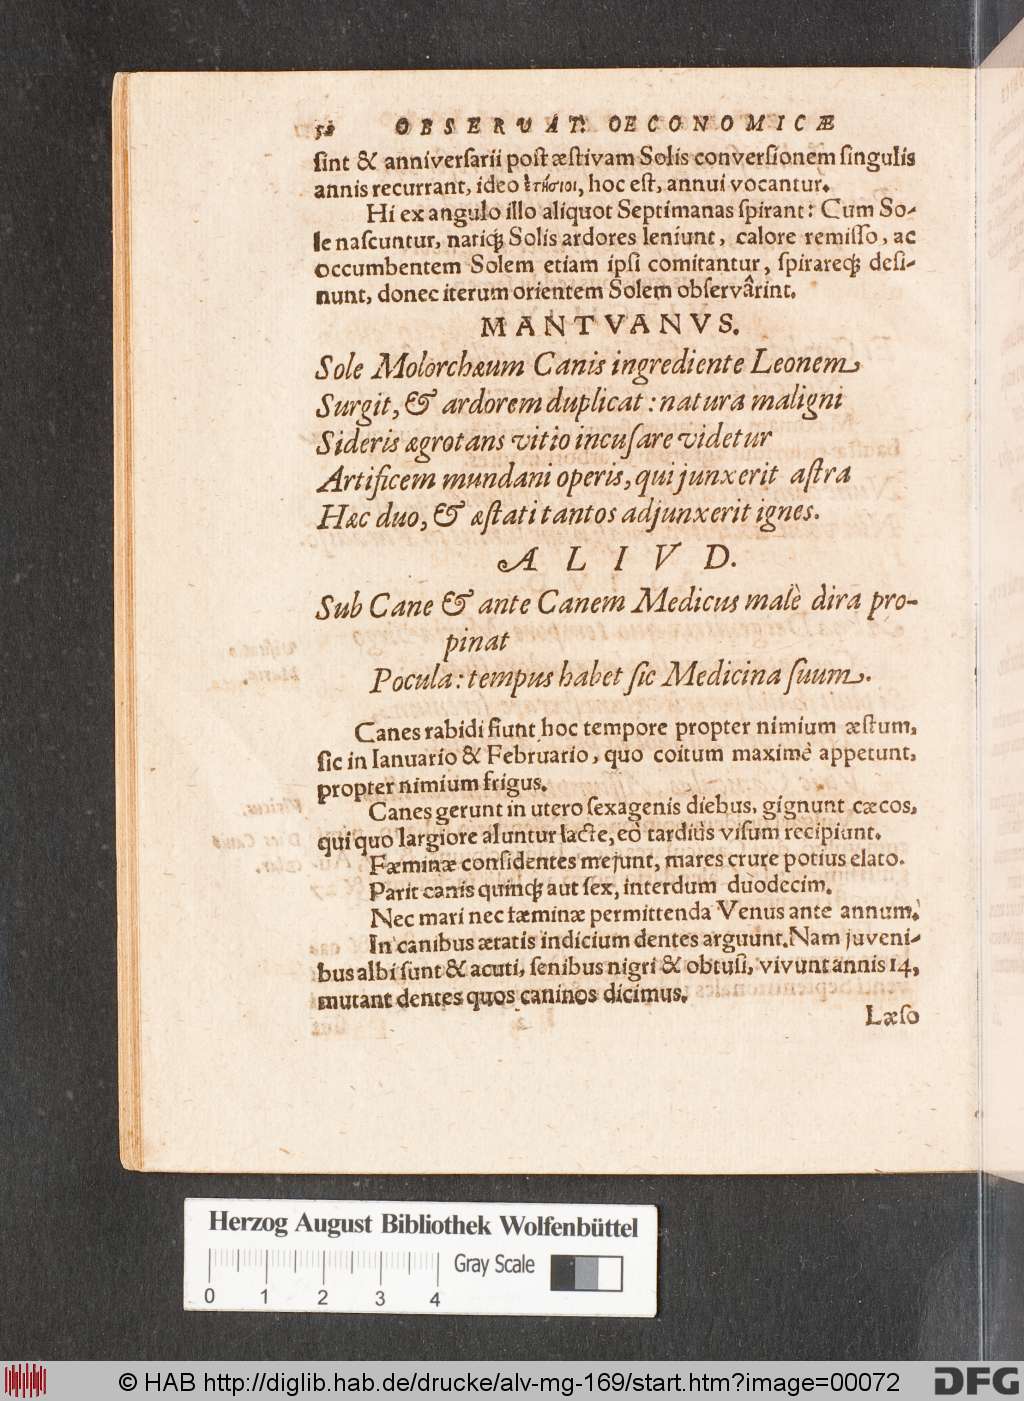 52 OBSERVAT: OECONOMICÆ
ſint & anniverſarii poſt æſtivam Solis converſionem ſingulis
annis recurrant, ideo ἐτήσιοι, hoc eſt, annui vocantur.
Hi ex angulo illo aliquot Septimanas ſpirant: Cum So-
le naſcuntur, natiq́; Solis ardores leniunt, calore remiſſo, ac
occumbentem Solem etiam ipſi comitantur, ſpirareq́; deſi-
nunt, donec iterum orientem Solem obſervârint.
MANTVANVS.
Sole Molorchæum Canis ingrediente Leonem
Surgit, & ardorem duplicat: natura maligni
Sideris ægrotans vitio incuſare videtur
Artificem mundani operis, qui junxerit aſtra
Hæc duo, & æſtati tantos adjunxerit ignes.
ALIVD.
Sub Cane & ante Canem Medicus malè dira pro-
pinat
Pocula: tempus habet ſic Medicina ſuum.
Canes rabidi fiunt hoc tempore propter nimium æſtum,
ſic in Ianuario & Februario, quo coitum maximè appetunt,
propter nimium frigus.
Canes gerunt in utero ſexagenis diebus, gignunt cæcos,
qui quo largiore aluntur lacte, eò tardiùs viſum recipiunt.
Fæminæ conſidentes mejunt, mares crure potius elato.
Parit canis quinq́; aut ſex, interdum duodecim.
Nec mari nec fæminæ permittenda Venus ante annum.
In canibus ætatis indicium dentes arguunt. Nam juveni-
bus albi ſunt & acuti, ſenibus nigri & obtuſi, vivunt annis 14,
mutant dentes quos caninos dicimus.
Læſo
Herzog August Bibliothek Wolfenbüttel
Gray Scale
0 1 2 3 4
© HAB http://diglib.hab.de/drucke/alv-mg-169/start.htm?image=00072
DFG